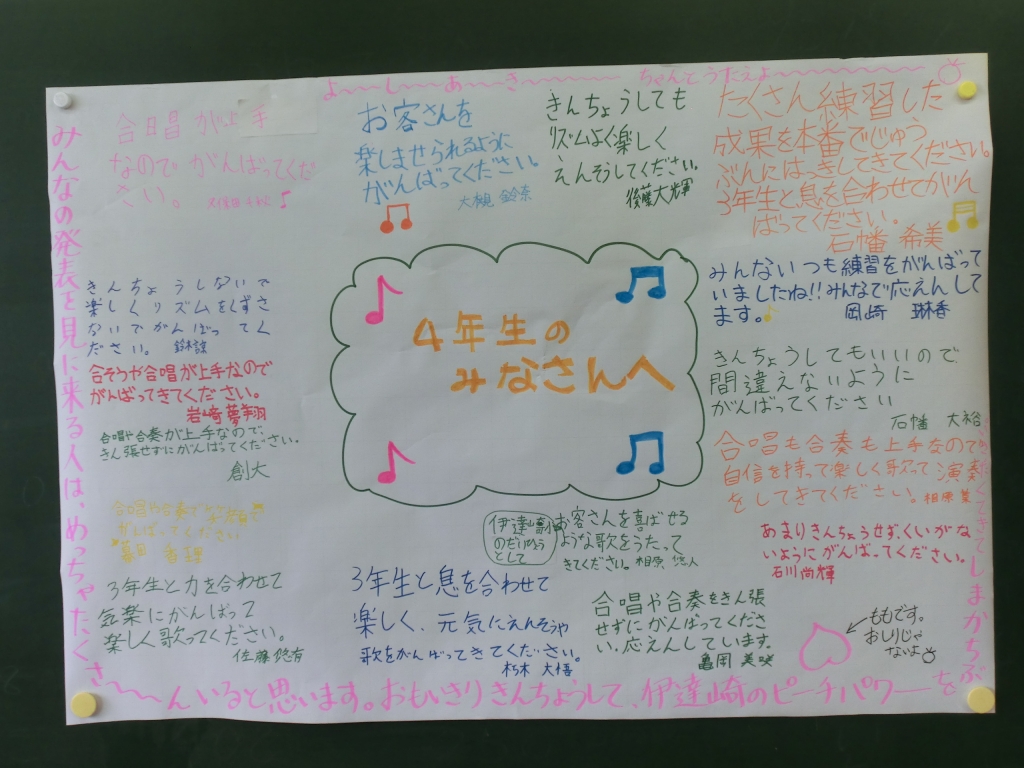 よーしーあーきー ちゃんとうたえよー
合唱が上手
なのでがんばってくだ
さい。
お客さんを
楽しませられるように
がんばってください。
大槻 鈴奈
きんちょうしても
リズムよく楽しく
えんそうしてください。
後藤大輝
たくさん練習した
成果を本番でじゅう
ぶんにはっきしてきてください。
3年生と息を合わせてがん
ばってください。
石幡 希美
みんないつも練習をがんばって
いましたね!!みんなで応えんして
ます。
岡崎 琳香
きんちょうしないで
楽しくリズムをくずさ
ないでがんばってく
ださい。 鈴木諒
4年生の
みなさんへ
きんちょうしてもいいので
間違えないように
がんばってください
石幡 大裕
合そうや合唱が上手なので
がんばってきてください。
岩崎夢翔
合唱や合奏が上手なので、
きん張せずにがんばってください。
創大
合唱も合奏も上手なので
自信を持って楽しく歌って演奏
をしてきてください。相原
合唱や合奏で笑顔で
がんばってください
伊達崎小
のだいひょう
として
お客さんを喜ばせる
ような歌をうたって
きてください。相原 悠人
あまりきんちょうせず、くいがな
いようにがんばってください。
石川尚輝
3年生と力を合わせて
気楽にがんばって
楽しく歌ってください。
佐藤悠有
3年生と息を合わせて
楽しく、元気にえんそうや
歌をがんばってきてください。
朽木 大悟
合唱や合奏をきん張
せずにがんばってくださ
い。応えんしています。
亀岡 美咲
ももです。
おしりじゃ
ないよ
みんなの発表を見に来る人は、めっちゃたくさ〜〜んいると思います。おもいきりきんちょうして、伊達崎のピーチパワーを